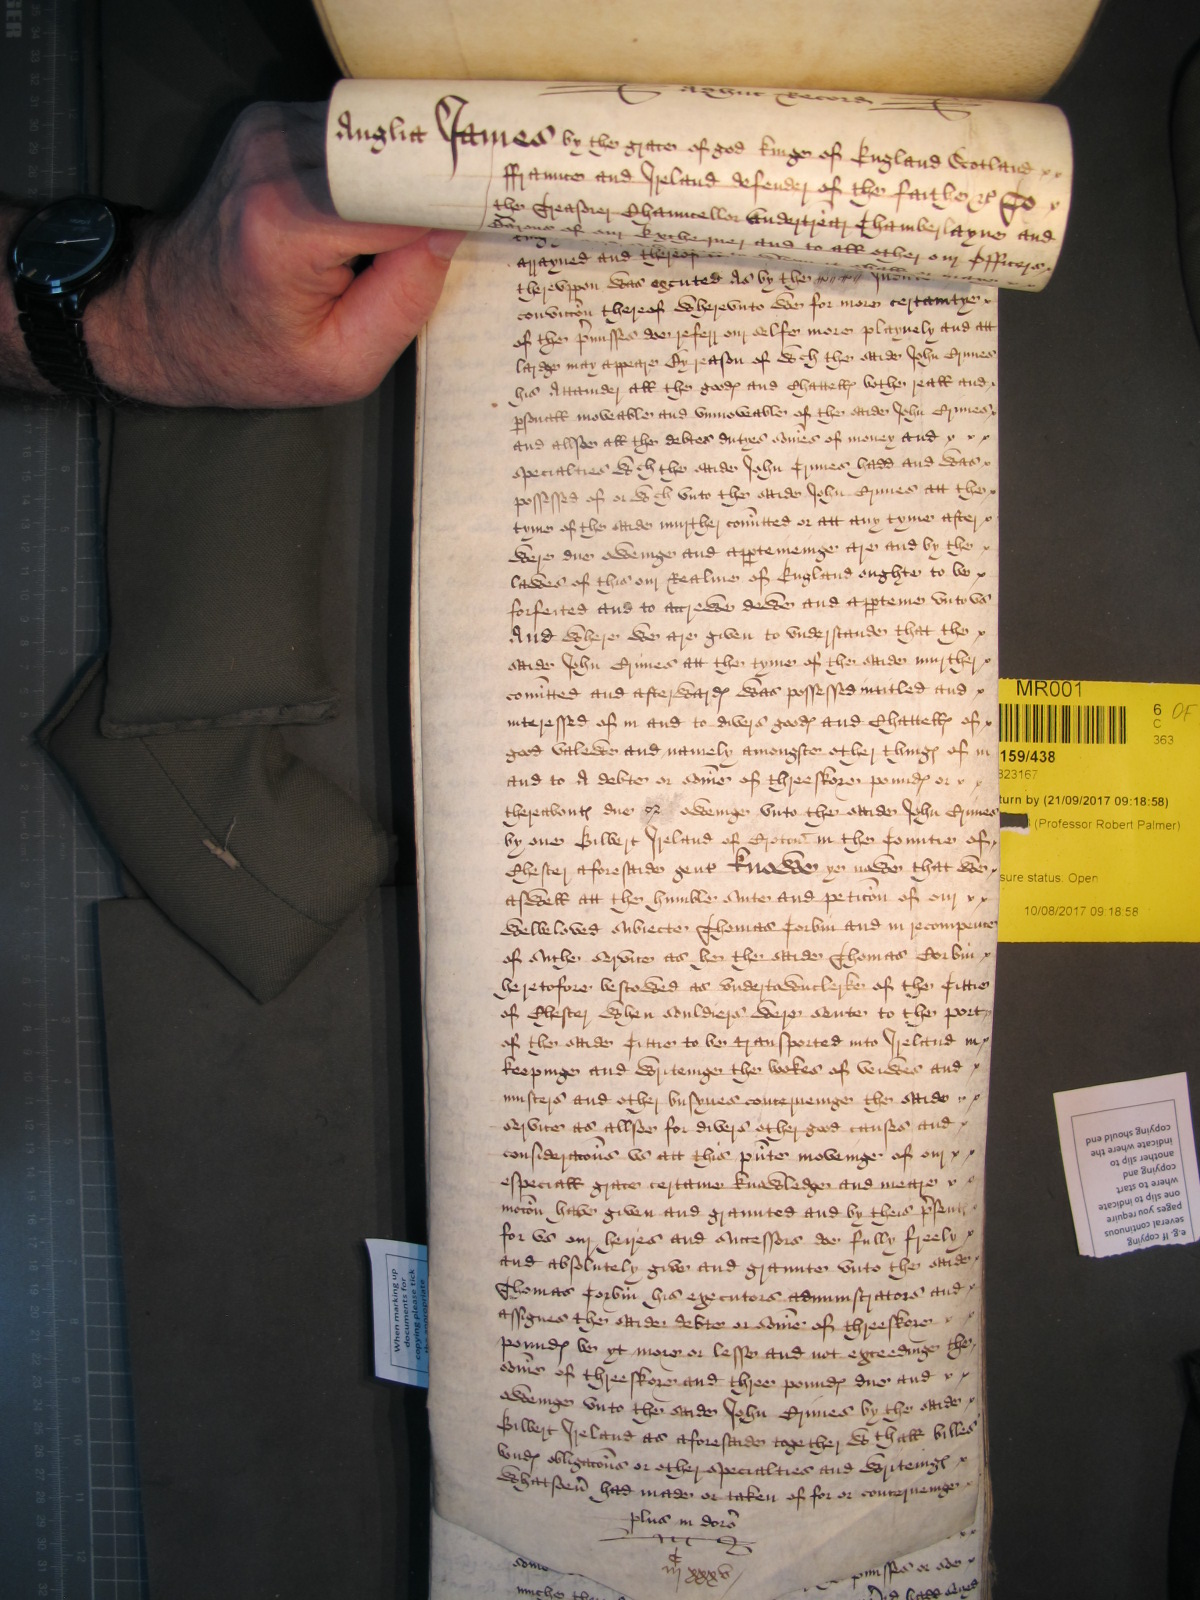 Adhuc Record
Anglia James by the grace of god kinge of England Scotland
ffraunce and Ireland defender of the faithe &c To
the Treasorer Chauncellor Undertreasr Chamberlayne and
Barons of our Exchequer and to all other our Officers
arrayned and therof
therevppon was executed As by the
conviccõn thereof Wherevnto we for more certaintye
of the p̃misses doe referr our selfe more playnely and att
lardge may appeare By reason of wch the saide John Crimes
his Attainder all the goodes and Chattells bothe reall and
psonall moveable and vnmoveable of the saide John Crimes
and allsoe all the debtes dutyes som̃es of money and
specialties wch the saide John Crimes hadd and was
possessed of or wch vnto the saide John Crimes att the
tyme of the saide murther com̃itted or att any tyme after
were due oweinge and apperteineinge are and by the
lawes of this our Realme of England oughte to be
forfeited and to accrewe dewe and apperteine vnto vs
And where we are given to vnderstande that the
saide John Crimes att the tyme of the saide murther
com̃itted and afterwardes was possessed intitled and
interessed of in and to divers goodes and Chattells of
good valewe and namely amongste other thinges of in
and to A debte or som̃e of threeskore poundes or
thereaboutes due or oweinge vnto the saide John Crimes
by one Gilbert Ireland of in the Countie of
Chester aforesaide gent Knowe ye nowe that we
aswell att the humble suite and peticõn of our
welbeloved subiecte Thomas Corbin and in recompence
of suche service as he the saide Thomas Corbin
heretofore bestowed as vndertowneclerke of the Cittie
of Chester when souldiers were sente to the port
of the saide Cittie to be transported into Ireland in
keepinge and writeinge the bookes of veiwes and
musters and other busynes concerneinge the saide
service as allsoe for divers other good causes and
consideracõns vs att this p̃nte moveinge of our
especiall grace certaine knowledge and meare
mocõn have given and graunted and by theis p̃sents
for vs our heires and successors doe fully freely
and absolutely give and graunte vnto the saide
Thomas Corbin his executors administrators and
assignes the saide debte or som̃e of threeskore
poundes be yt more or lesse and not exceedinge the
som̃e of threeskore and three poundes due and
oweinge vnto the saide John Crimes by the saide
Gilbert Ireland as aforesaide together wth all billes
bondes obligacõns or other specialties and writeinges
whatsoeũ had made or taken of for or concerneinge
plus in dors̃
xxxv
some p̃misses or
MR001
6 OF
C
363
159/438
823167
turn by (21/09/2017 09:18:58)
(Professor Robert Palmer)
sure status: Open
10/08/2017 09:18:58
e.g. If copying
several continuous
pages you require
one slip to indicate
where to start
copying and
another slip to
indicate where the
copying should end
When marking up
documents for
copying please tick
the appropriate